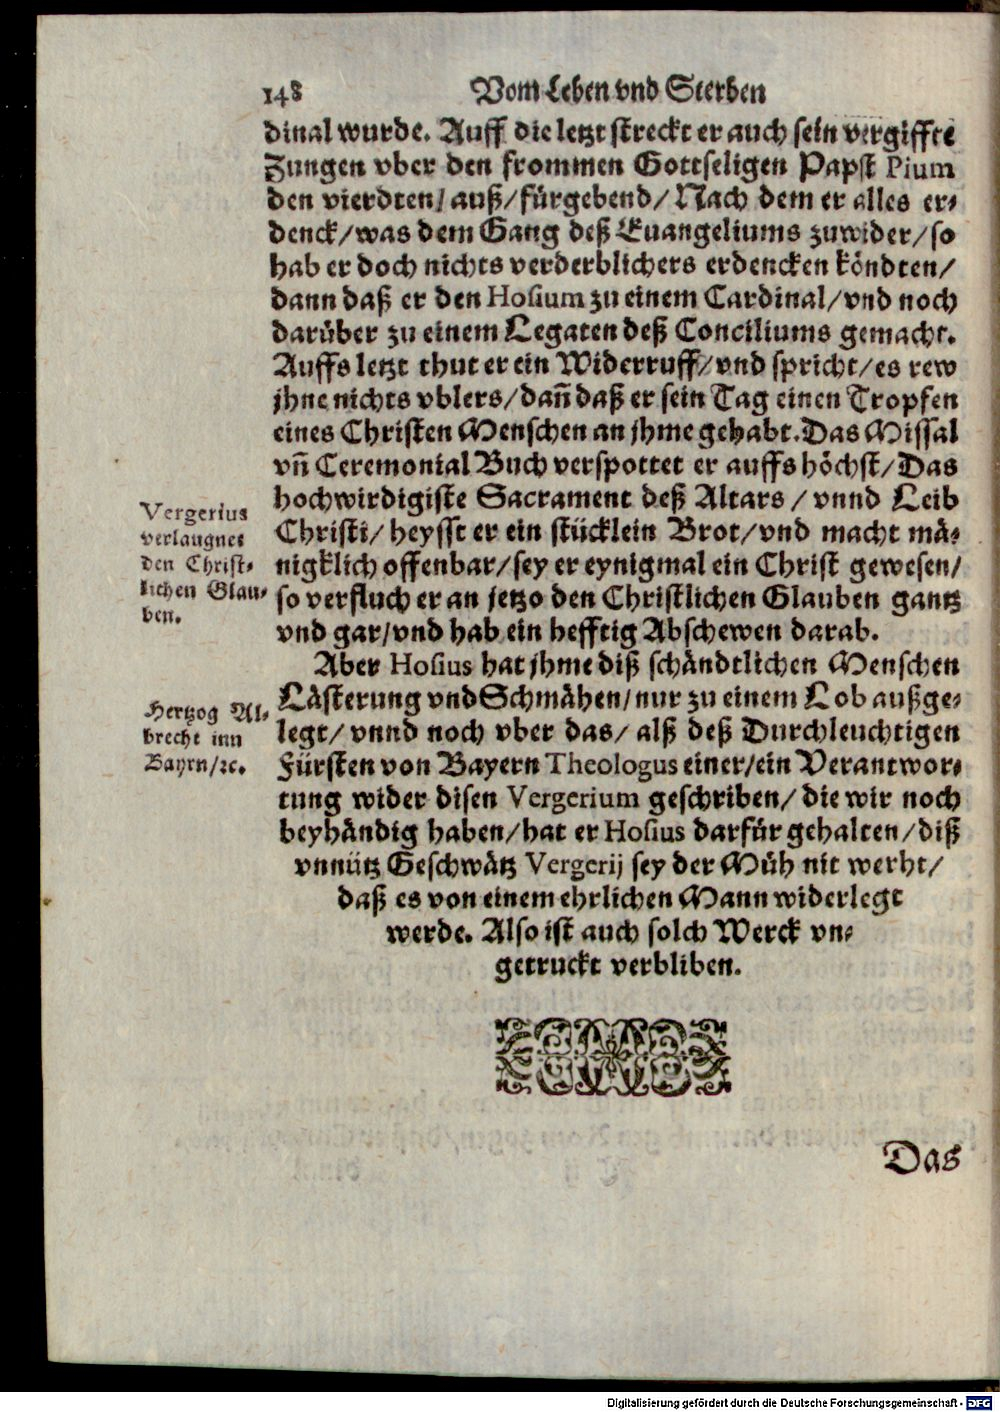 148 Vom Leben vnd Sterben
dinal wurde. Auff die letzt streckt er auch sein vergiffte
Zungen vber den frommen Gottseligen Papst Pium
den vierdten/ auß/ fürgebend/ Nach dem er alles er-
denck/ was dem Gang deß Euangeliums zuwider/ so
hab er doch nichts verderblichers erdencken köndten/
dann daß er den Hosium zu einem Cardinal/ vnd noch
darüber zu einem Legaten deß Conciliums gemacht.
Auffs letzt thut er ein Widerruff/ vnd spricht/ es rew
jhne nichts vblers/ dañ daß er sein Tag einen Tropfen
eines Christen Menschen an jhme gehabt. Das Missal
vñ Ceremonial Buch verspottet er auffs höchst/ Das
hochwirdigiste Sacrament deß Altars / vnnd Leib
Christi/ heysst er ein stücklein Brot/ vnd macht mä-
nigklich offenbar/ sey er eynigmal ein Christ gewesen/
so verfluch er an jetzo den Christlichen Glauben gantz
vnd gar/ vnd hab ein hefftig Abschewen darab.
Vergerius
verlaugnet
den Christ-
lichen Glau-
ben.
Aber Hosius hat jhme diß schändtlichen Menschen
Lästerung vnd Schmähen/ nur zu einem Lob außge-
legt/ vnnd noch vber das/ alß deß Durchleuchtigen
Fürsten von Bayern Theologus einer/ ein Verantwor-
tung wider disen Vergerium geschriben/ die wir noch
beyhändig haben/ hat er Hosius darfür gehalten/ diß
vnnütz Geschwätz Vergerij sey der Müh nit werht/
daß es von einem ehrlichen Mann widerlegt
werde. Also ist auch solch Werck vn-
getruckt verbliben.
Hertzog Al-
brecht inn
Bayrn/ ꝛc.
Das
Digitalisierung gefördert durch die Deutsche Forschungsgemeinschaft - DFG